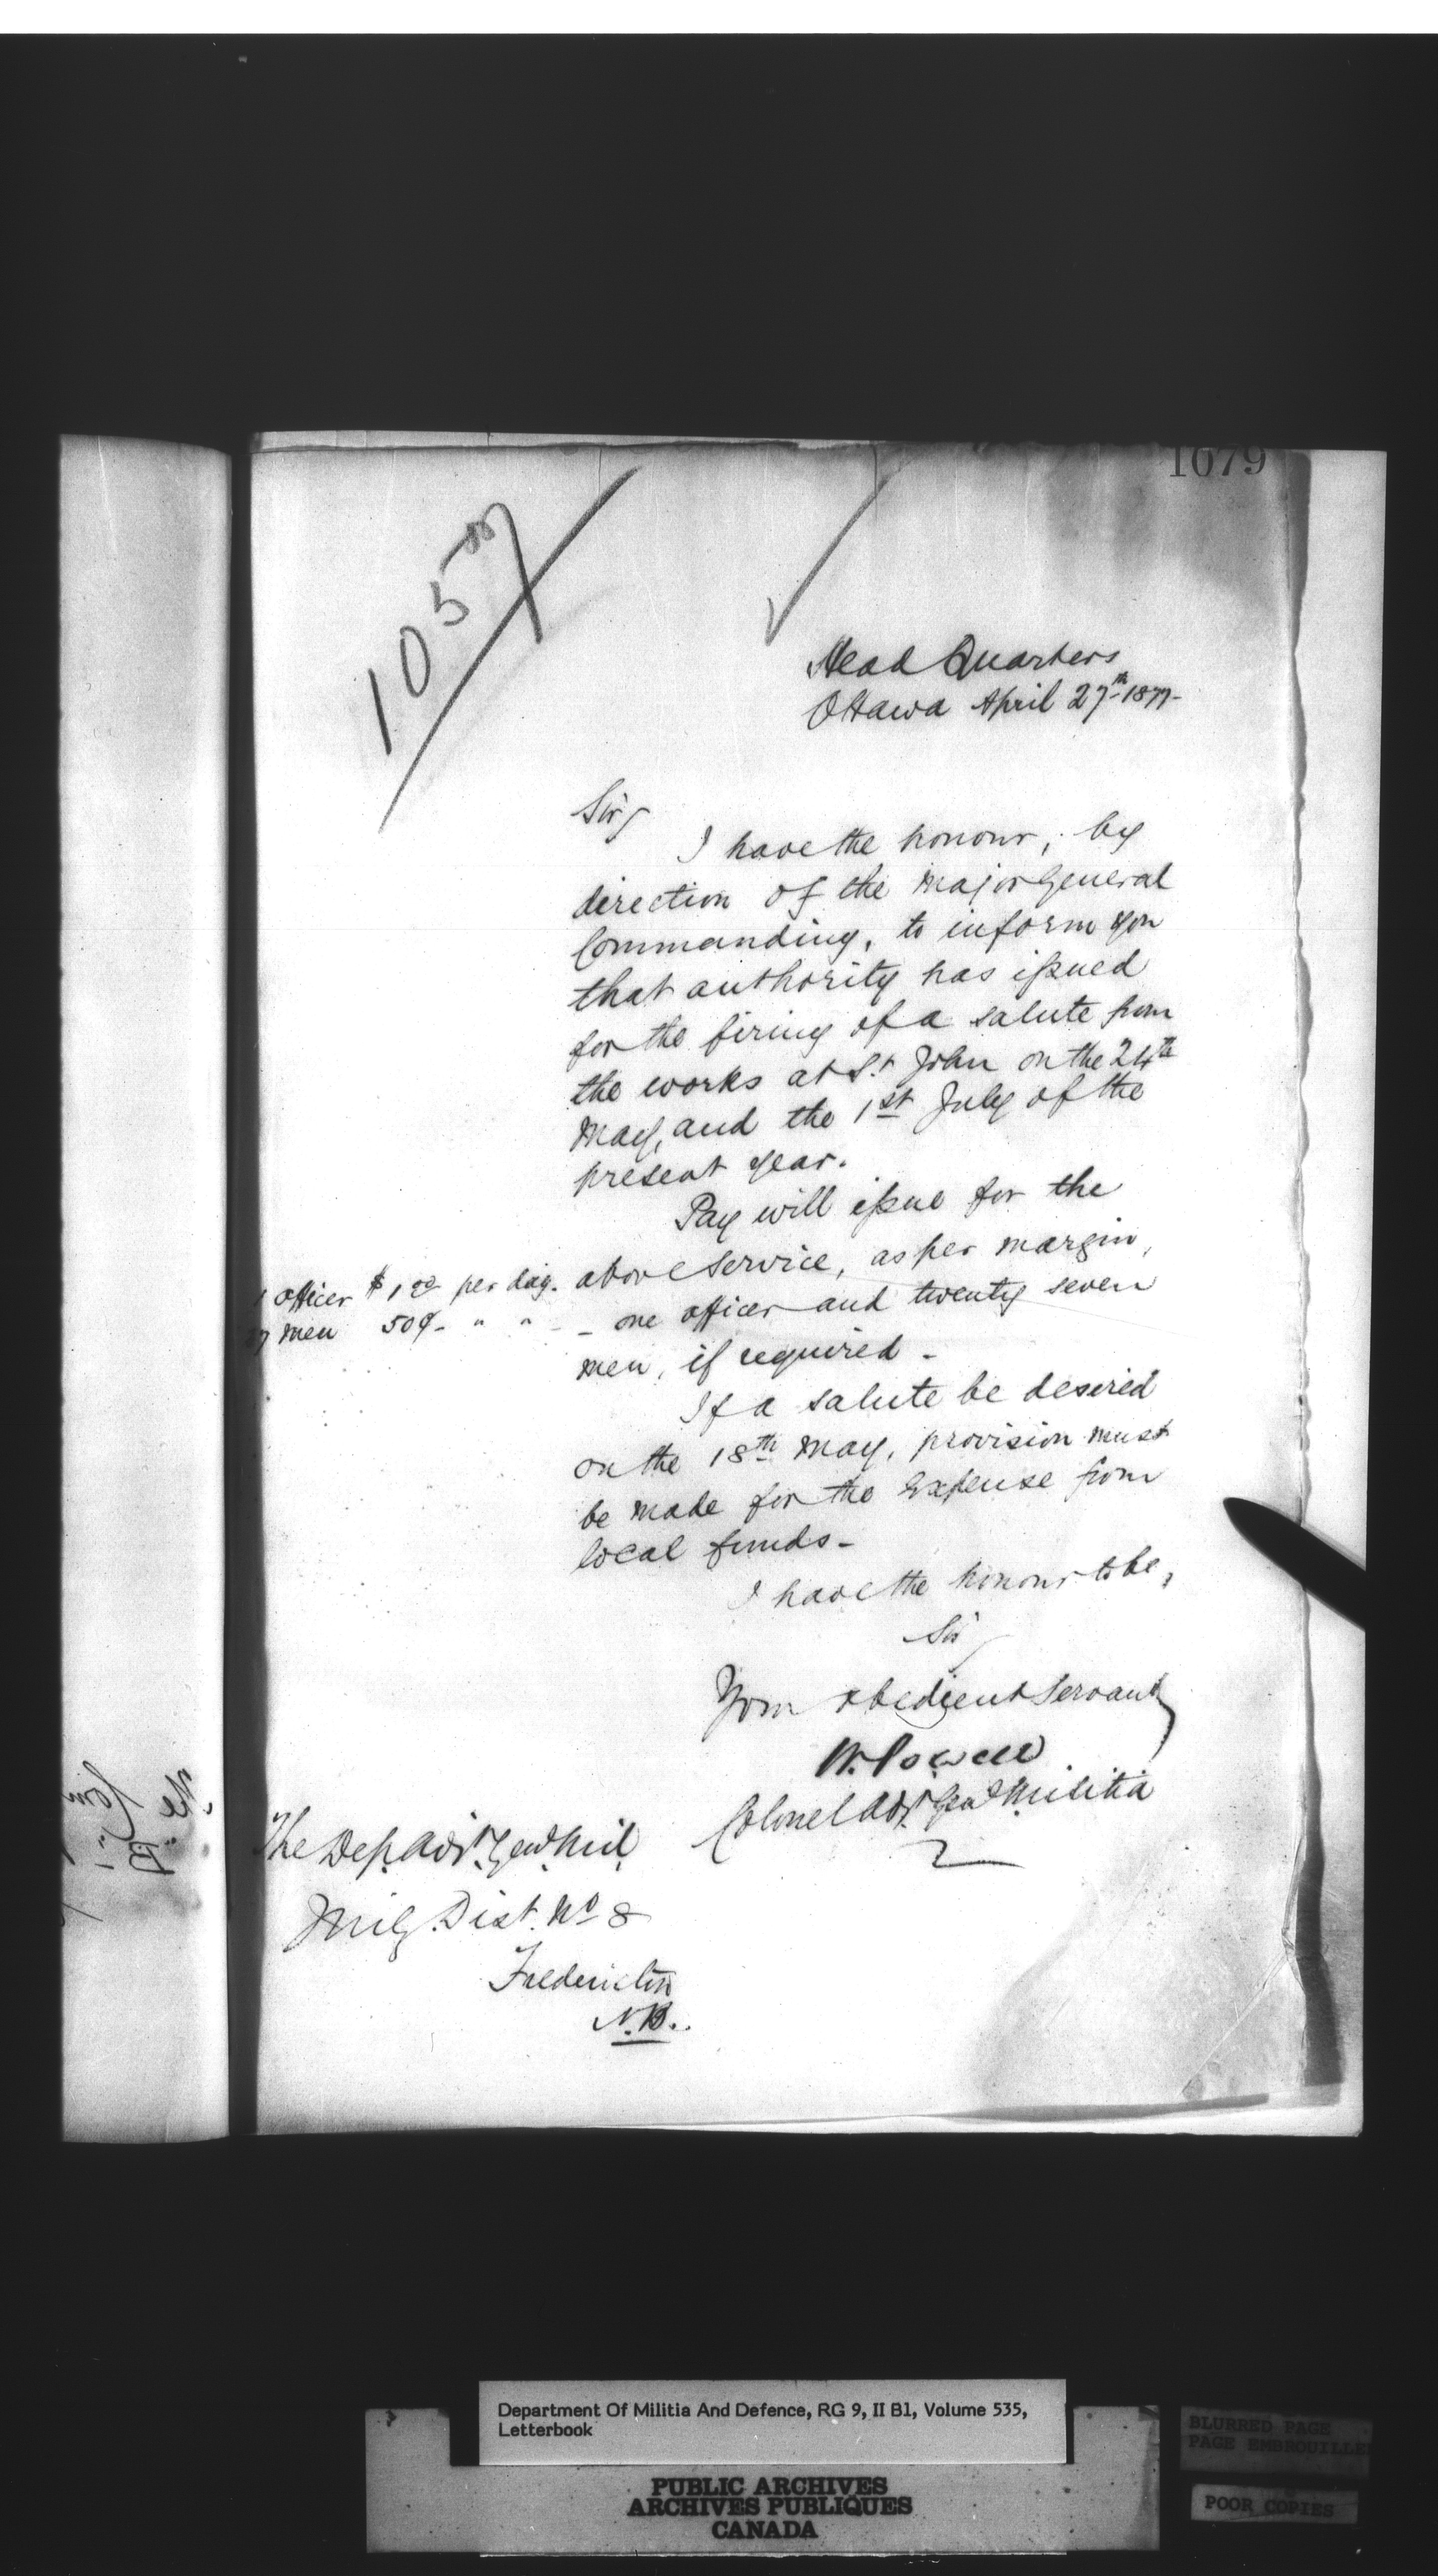 1679
105
Head Quarters
Ottawa April 27th 1877-
Sir,
I have the honour, by
direction of the Major General
Commanding, to inform you
that authority has issued
for the firing of a salute from
the works at St John on the 24th
May, and the 1st July of the
present year.
Pay will issue for the
above service, as per margin,
1 Officer $1.00 per day.
- one officer and twenty seven
27 men 50¢- " " -
men, if required -
If a salute be desired
on the 18th May, provision must
be made for the expense from
local funds-
I have the honour to be,
Sir
Your obedient Servant
W. Powell
Colonel Adjt. Genl Militia
The Dep. Adjt. Genl. Mil.
Mily. Dist. No 8
Fredericton
N.B.
Department Of Militia And Defence, RG 9, II B1, Volume 535,
Letterbook
PUBLIC ARCHIVES
ARCHIVES PUBLIQUES
CANADA
BLURRED PAGE
PAGE EMBROUILLE
POOR COPIES